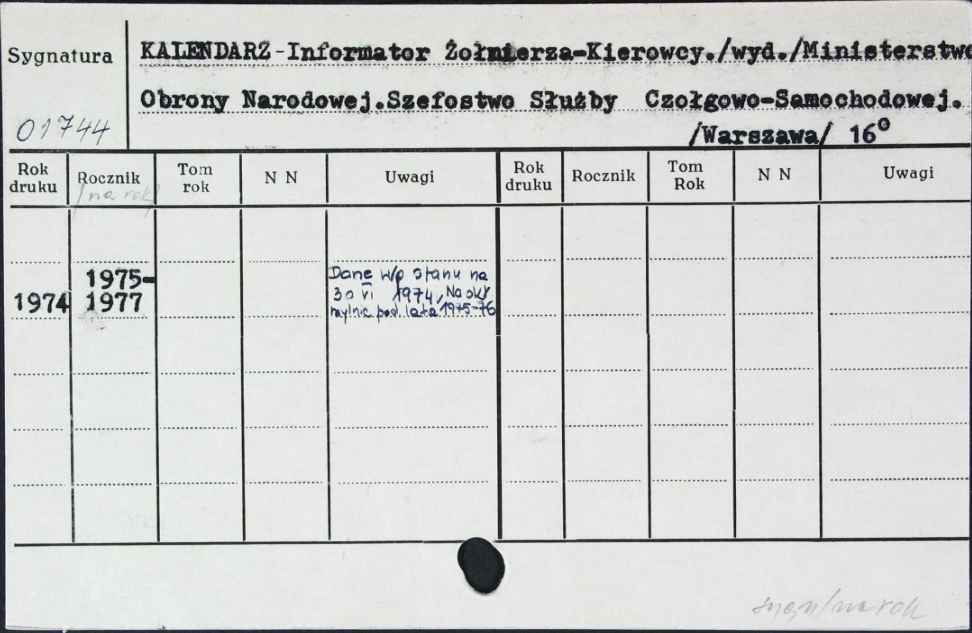 KALENDARZ-Informator Żołnierza-Kierowcy./wyd./Ministerstwo
Sygnatura
Obrony Narodowej.Szefostwo Służby Czołgowo-Samochodowej.
01744
/Warszawa/ 16°
Rok druku Rocznik Tom rok N N Uwagi Rok druku Rocznik Tom Rok N N Uwagi
/na rok/
1974 1975-1977
Dane w/p stanu na
30 VI 1974, Na okł
mylnie pod. lata 1975-76
/na rok